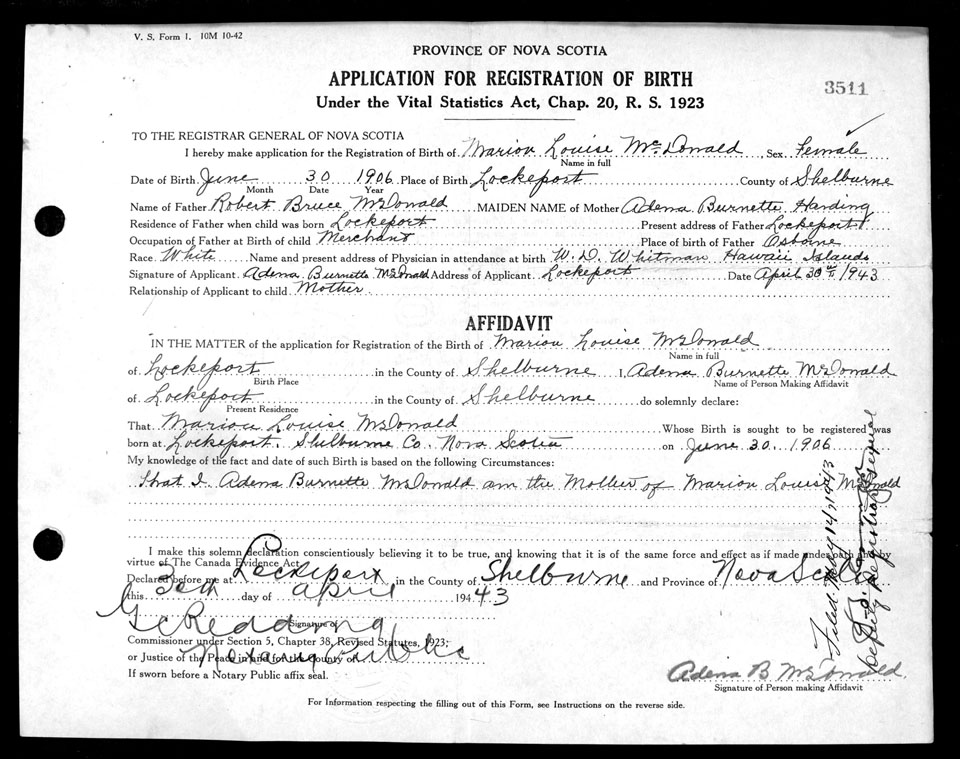 V. S. Form 1. 10M 10-42
PROVINCE OF NOVA SCOTIA
APPLICATION FOR REGISTRATION OF BIRTH
3511
Under the Vital Statistics Act, Chap. 20, R. S. 1923
TO THE REGISTRAR GENERAL OF NOVA SCOTIA
I hereby make application for the Registration of Birth of Marion Louise McDonald Sex Female
Name in full
Date of Birth June 30 1906 Place of Birth Lockeport County of Shelburne
Month Date Year
Name of Father Robert Bruce McDonald MAIDEN NAME of Mother Adena Burnette Harding
Residence of Father when child was born Lockeport Present address of Father Lockeport
Occupation of Father at Birth of child Merchant Place of birth of Father Osborne
Race White Name and present address of Physician in attendance at birth W. D. Whitman Hawaii Islands
Signature of Applicant Adena Burnette McDonald Address of Applicant Lockeport Date April 30th 1943
Relationship of Applicant to child Mother
AFFIDAVIT
IN THE MATTER of the application for Registration of the Birth of Marion Louise McDonald
Name in full
of Lockeport in the County of Shelburne I, Adena Burnette McDonald
Birth Place Name of Person Making Affidavit
of Lockeport in the County of Shelburne do solemnly declare:
Present Residence
That Marion Louise McDonald Whose Birth is sought to be registered was
born at Lockeport, Shelburne Co. Nova Scotia on June 30, 1906
My knowledge of the fact and date of such Birth is based on the following Circumstances:
That I Adena Burnette McDonald am the Mother of Marion Louise McDonald
I make this solemn declaration conscientiously believing it to be true, and knowing that it is of the same force and effect as if made under oath and by
virtue of The Canada Evidence Act.
Declared before me at Lockeport in the County of Shelburne and Province of Nova Scotia
this 30th day of April 1943
Signature of
Commissioner under Section 5, Chapter 38, Revised Statutes, 1923;
Notary Public
or Justice of the Peace in and for the County of
If sworn before a Notary Public affix seal.
Adena B McDonald
Signature of Person making Affidavit
For Information respecting the filling out of this Form, see Instructions on the reverse side.
Filed. May 14, 1943
Deputy Registrar General